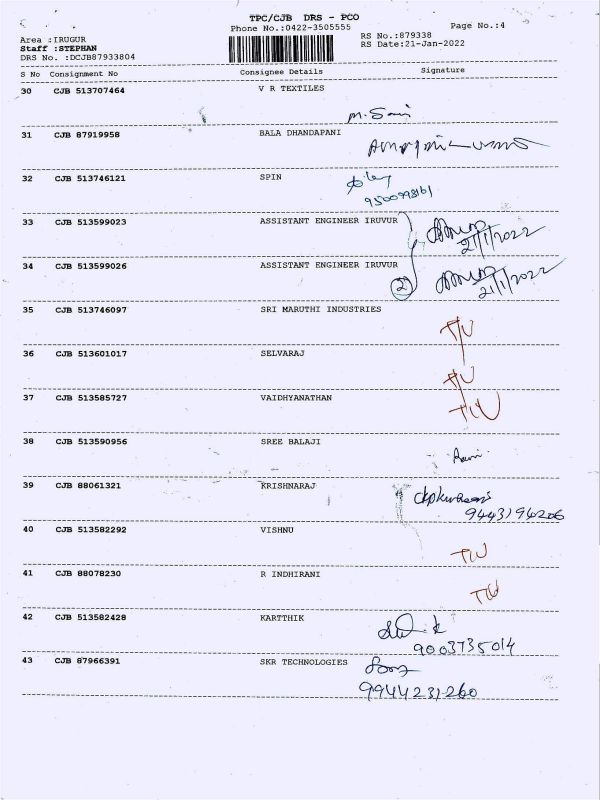 TPC/CJB DRS - PCO
Phone No.:0422-3505555
Page No.:4
Area :IRUGUR
RS No.:879338
Staff :STEPHAN
RS Date:21-Jan-2022
DRS No. :DCJB87933804
S No Consignment No Consignee Details Signature
30 CJB 513707464 V R TEXTILES
M. Sam
31 CJB 87919958 BALA DHANDAPANI
32 CJB 513746121 SPIN
33 CJB 513599023 ASSISTANT ENGINEER IRUVUR
21/1/2022
34 CJB 513599026 ASSISTANT ENGINEER IRUVUR
2 21/1/2022
35 CJB 513746097 SRI MARUTHI INDUSTRIES
T/U
36 CJB 513601017 SELVARAJ
T/U
37 CJB 513585727 VAIDHYANATHAN
T/U
38 CJB 513590956 SREE BALAJI
Rani
39 CJB 88061321 KRISHNARAJ
9443194206
40 CJB 513582292 VISHNU
T/U
41 CJB 88078230 R INDHIRANI
T/U
42 CJB 513582428 KARTTHIK
9003735014
43 CJB 87966391 SKR TECHNOLOGIES
9944231260